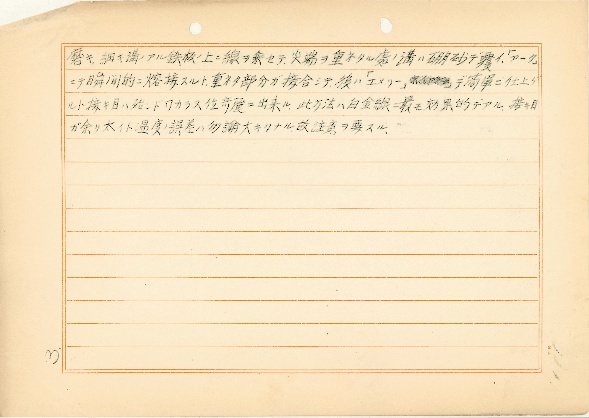 磨キ、細キ溝ノアル鉄板ノ上ニ線ヲ乗セテ、尖端ヲ重ネタル處ノ溝ハ硼砂デ覆イ、「アーク」
ニテ瞬間的ニ熔接スルト、重ネタ部分ガ接合シテ、後ハ「エメリー」デ簡単ニ仕上ゲ
ルト接キ目ハ殆ンドワカラヌ位奇麗ニ出来ル、此方法ハ白金線ニ最モ効果的デアル、接キ目
ガ余リ太イト温度ノ誤差ハ勿論大キクナル故注意ヲ要スル、